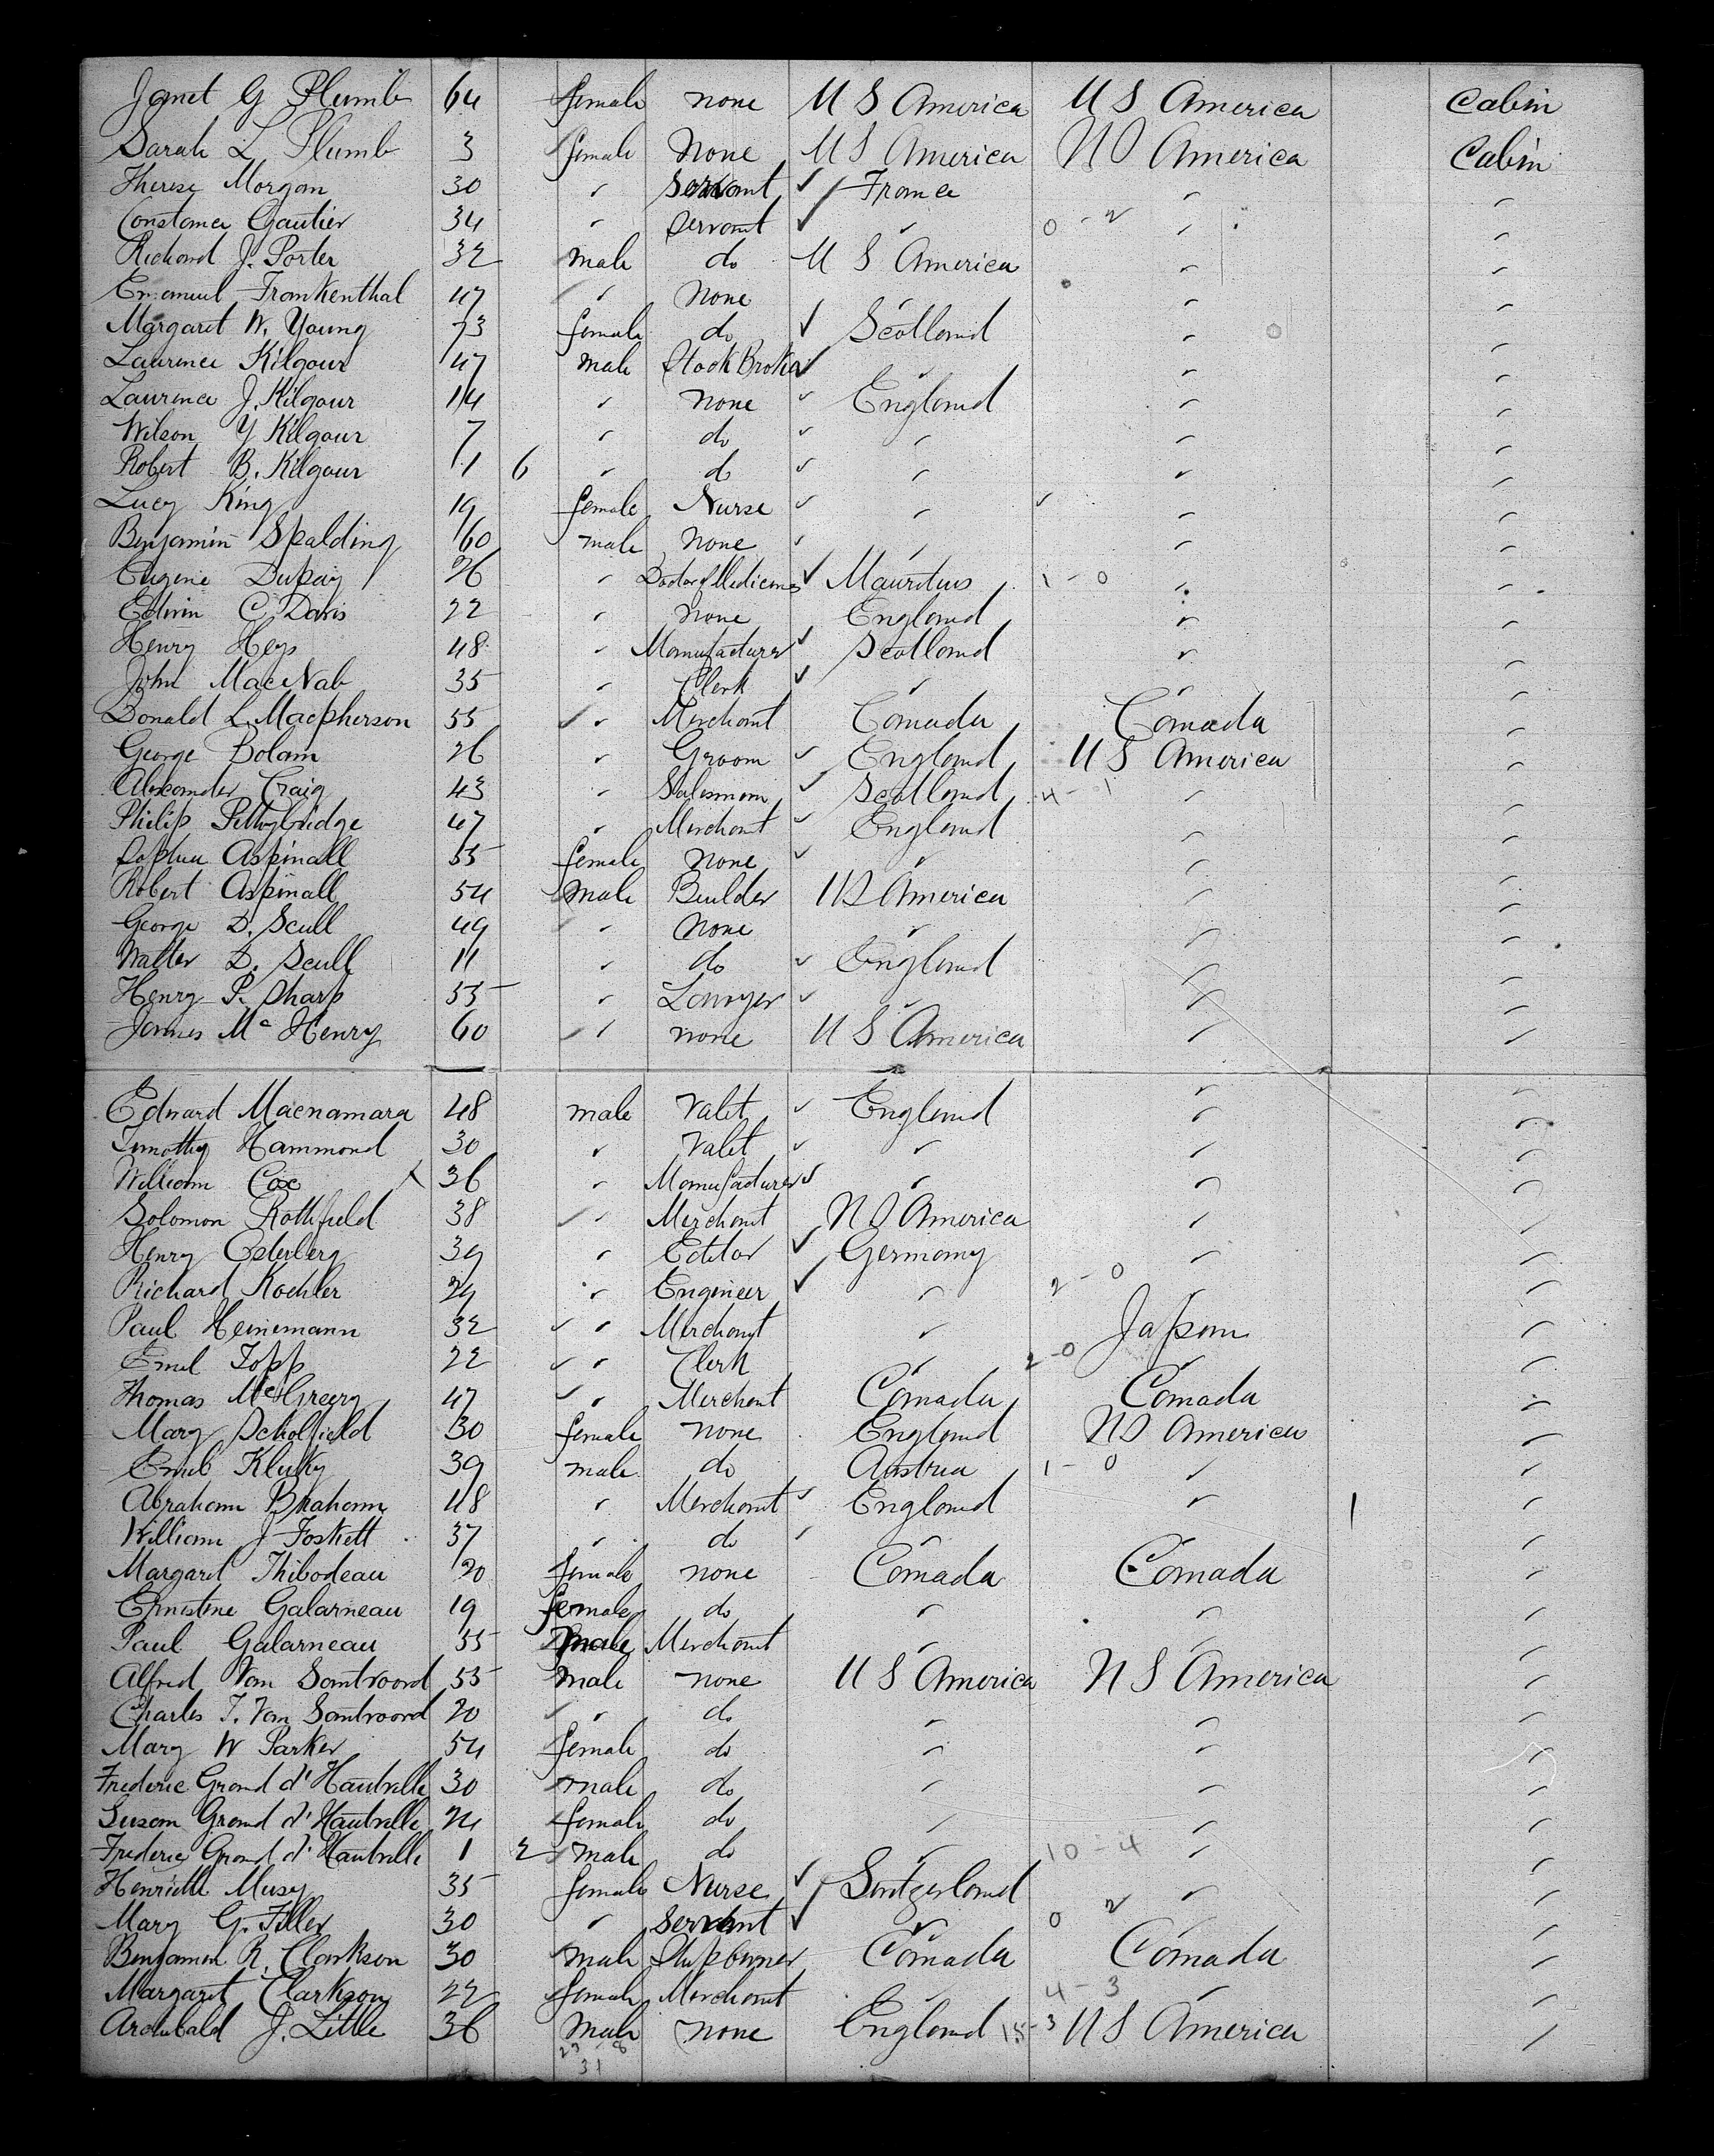 Janet G Plumb 64 female none U S America U S America Cabin
Sarah L Plumb 3 female none U S America U S America Cabin
Therese Morgan 30 " Servant ✓ France " "
Constance Gautier 34 " Servant ✓ " 0 - 2 " "
Richard J. Porter 32 male do U S America " "
Emanuel Frankenthal 47 " none " " "
Margaret W. Young 73 female do ✓ Scotland " "
Laurence Kilgour 47 male Stock Broker ✓ " " "
Laurence J. Kilgour 14 " none ✓ England " "
Wilson Y Kilgour 7 " do ✓ " " "
Robert B. Kilgour 1 6 " do ✓ " " "
Lucy King 19 female Nurse ✓ " ✓ " "
Benjamin Spalding 60 male none ✓ " " "
Eugene Dupuy 26 " Doctor of Medicine ✓ Mauritius 1 - 0 " "
Edwin C Davis 22 " none England " "
Henry Heys 48 " Manufacturer ✓ Scotland " "
John MacNab 35 " Clerk ✓ " " "
Donald L. Macpherson 55 " Merchant Canada Canada "
George Bolam 26 " Groom ✓ England U S America "
Alexander Craig 43 " Salesman ✓ Scotland 4 - 1 " "
Philip 47 " Merchant ✓ England " "
Aspinall 55 female none ✓ " " "
Robert Aspinall 54 male Builder U S America " "
George D. Scull 49 " none " " "
Walter D. Scull 11 " do ✓ England " "
Henry P. Sharp 55 " Lawyer ✓ " " "
James Mc Henry 60 " none U S America " "
Edward Macnamara 48 male Valet ✓ England " "
Timothy Hammond 30 " Valet ✓ " " "
William Cox x 36 " Manufacturer ✓ " " "
Solomon Rothfield 38 " Merchant U S America " "
Henry Ederberg 39 " Editor ✓ Germany " "
Richard Koehler 29 " Engineer ✓ " 2 - 0 " "
Paul Heinemann 32 " Merchant " Japan "
Emil Topp 22 " Clerk " 2 - 0 " "
Thomas McGreevy 47 " Merchant Canada Canada "
Mary Scholfield 30 female none England U S America "
Emil Kluky 39 male do Austria 1 - 0 " "
Abraham Braham 48 " Merchant ✓ England " 1 "
William J Foskett 37 " do ✓ " "
Margaret Thibodeau 20 female none Canada Canada "
Ernestine Galarneau 19 female do " " "
Paul Galarneau 55 male Merchant " " "
Alfred Van Santvoord 55 male none U S America U S America "
Charles T. Van Santvoord 20 " do " " "
Mary W Parker 54 female do " " "
Frederic Grand d'Hauteville 30 male do " " "
Susan Grand d'Hauteville 24 female do " " "
Frederic Grand d'Hauteville 1 2 male do " 10 - 4 " "
Henriette Musy 35 female Nurse ✓ Switzerland " "
Mary G. Filler 30 " Servant ✓ " 0 2 "
Benjamin R. Clarkson 30 male Shipowner Canada Canada "
Margaret Clarkson 22 female Merchant " 4 - 3 " "
Archibald J. Little 36 male none England 15 - 3 U S America "
23 - 8
31